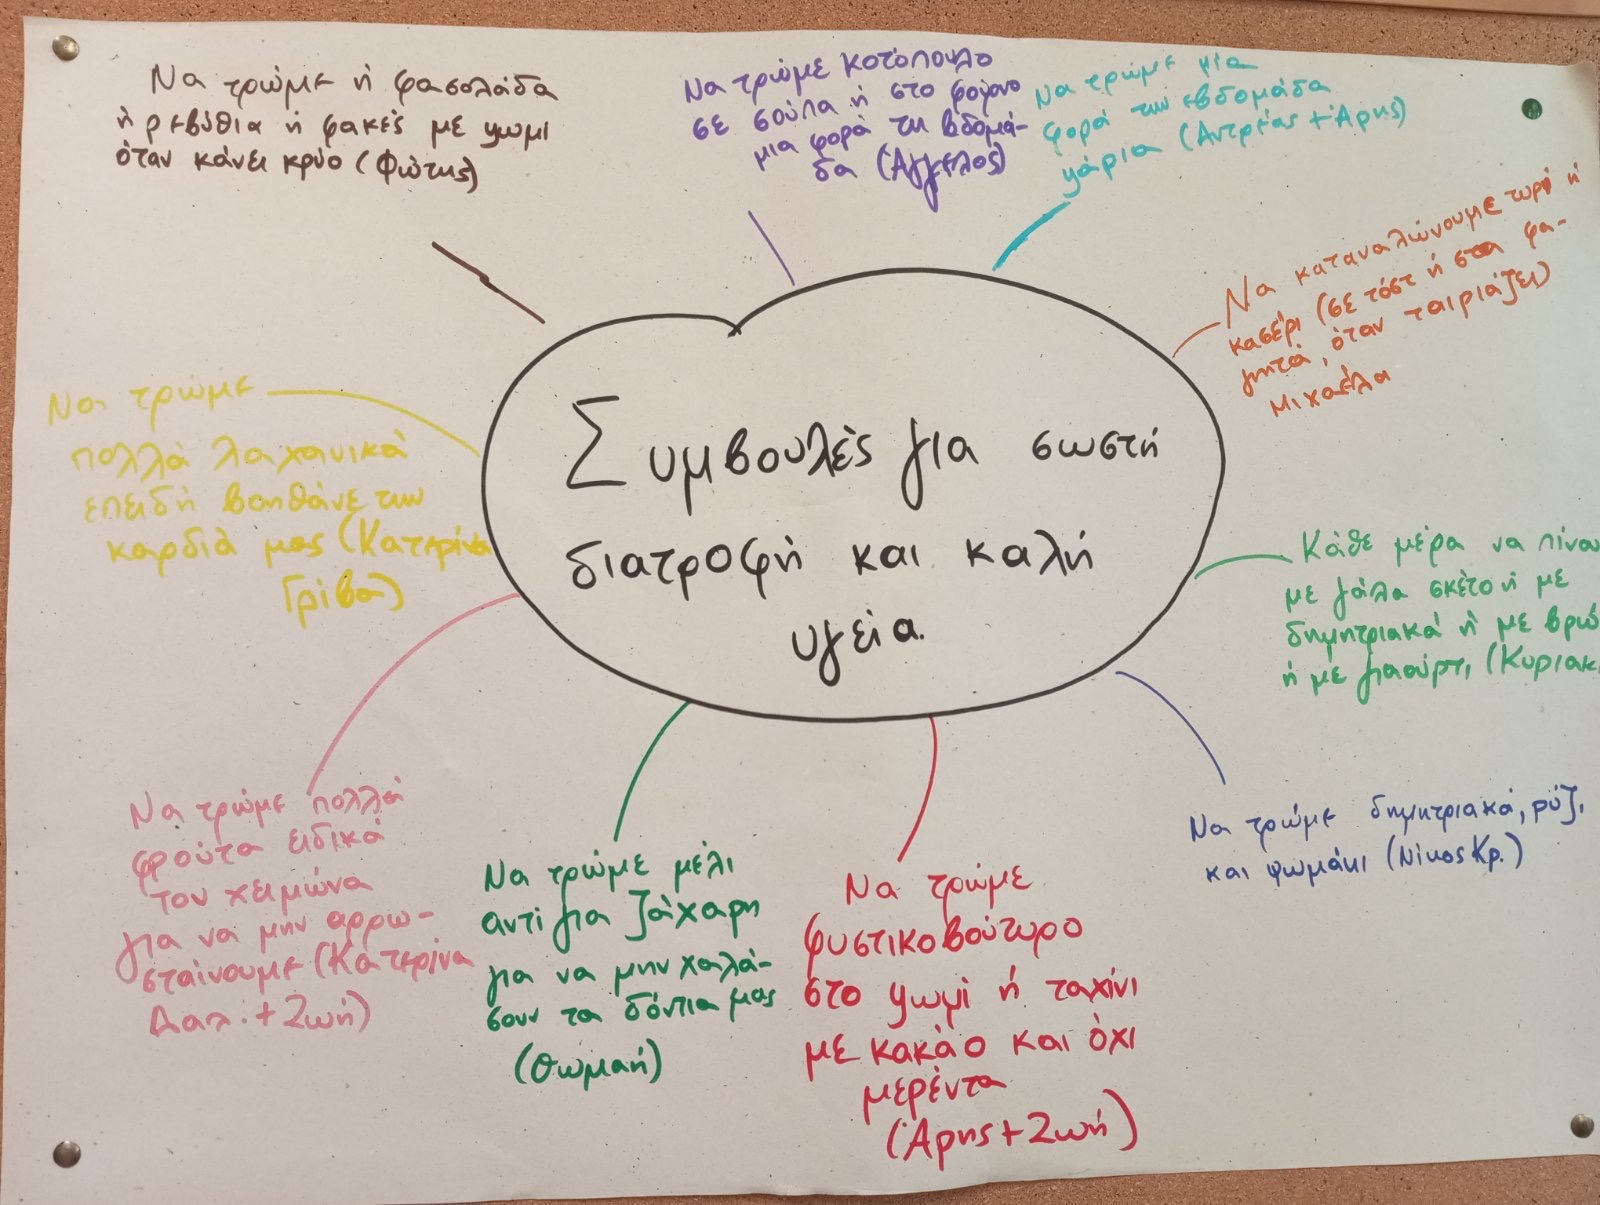 Συμβουλές για σωστή
διατροφή και καλή
υγεία.
Να τρώμε ή φασολάδα
ή ρεβύθια ή φακές με ψωμι
όταν κάνει κρύο (Φώτης)
Να τρώμε κοτόπουλο
σε σούπα ή στο φούρνο
μια φορά τη βδομά-
δα (Άγγελος)
Να τρώμε μια
φορά την εβδομάδα
ψάρια (Αντρέας + Άρης)
Να καταναλώνουμε τυρί ή
κασέρι (σε τόστ ή στα φα-
γητά, όταν ταιριάζει)
Μιχαέλα
Κάθε μέρα να πίνου
με γάλα σκέτο ή με
δημητριακά ή με βρώ
ή με γιαούρτι, (Κυριακ
Να τρώμε δημητριακά, ρύζι
και ψωμάκι (Νίκος Κρ.)
Να τρώμε
φυστικοβούτυρο
στο ψωμί ή ταχίνι
με κακάο και όχι
μερέντα
(Άρης + Ζωή)
Να τρώμε μέλι
αντί για ζάχαρη
για να μην χαλά-
σουν τα δόντια μας
(Θωμαή)
Να τρώμε πολλά
φρούτα ειδικά
τον χειμώνα
για να μην αρρω-
σταίνουμε (Κατερίνα
Δαλ. + Ζωή)
Να τρώμε
πολλά λαχανικά
επειδή βοηθάνε την
καρδιά μας (Κατερίνα
Γρίβα)